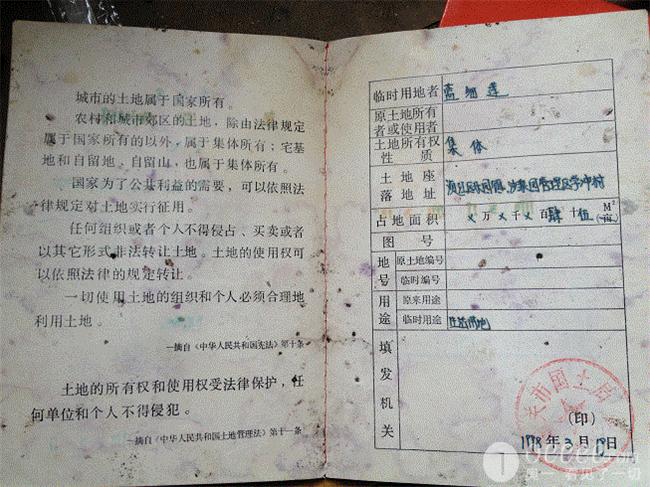 城市的土地属于国家所有。
农村和城市郊区的土地，除由法律规定
属于国家所有的以外，属于集体所有；宅基
地和自留地、自留山，也属于集体所有。
国家为了公共利益的需要，可以依照法
律规定对土地实行征用。
任何组织或者个人不得侵占、买卖或者
以其它形式非法转让土地。土地的使用权可
以依照法律的规定转让。
一切使用土地的组织和个人必须合理地
利用土地。
—摘自《中华人民共和国宪法》第十条
土地的所有权和使用权受法律保护，任
何单位和个人不得侵犯。
—摘自《中华人民共和国土地管理法》第十一条
临时用地者
原土地所有
者或使用者
土地所有权
性质 集体
土地座
落地址 管理区 村
占地面积 万 千 百肆十伍 M²
图号
地号 原土地编号
临时编号
用途 原来用途
临时用途
填发机关
市国土局
（印）
1998年3月 日